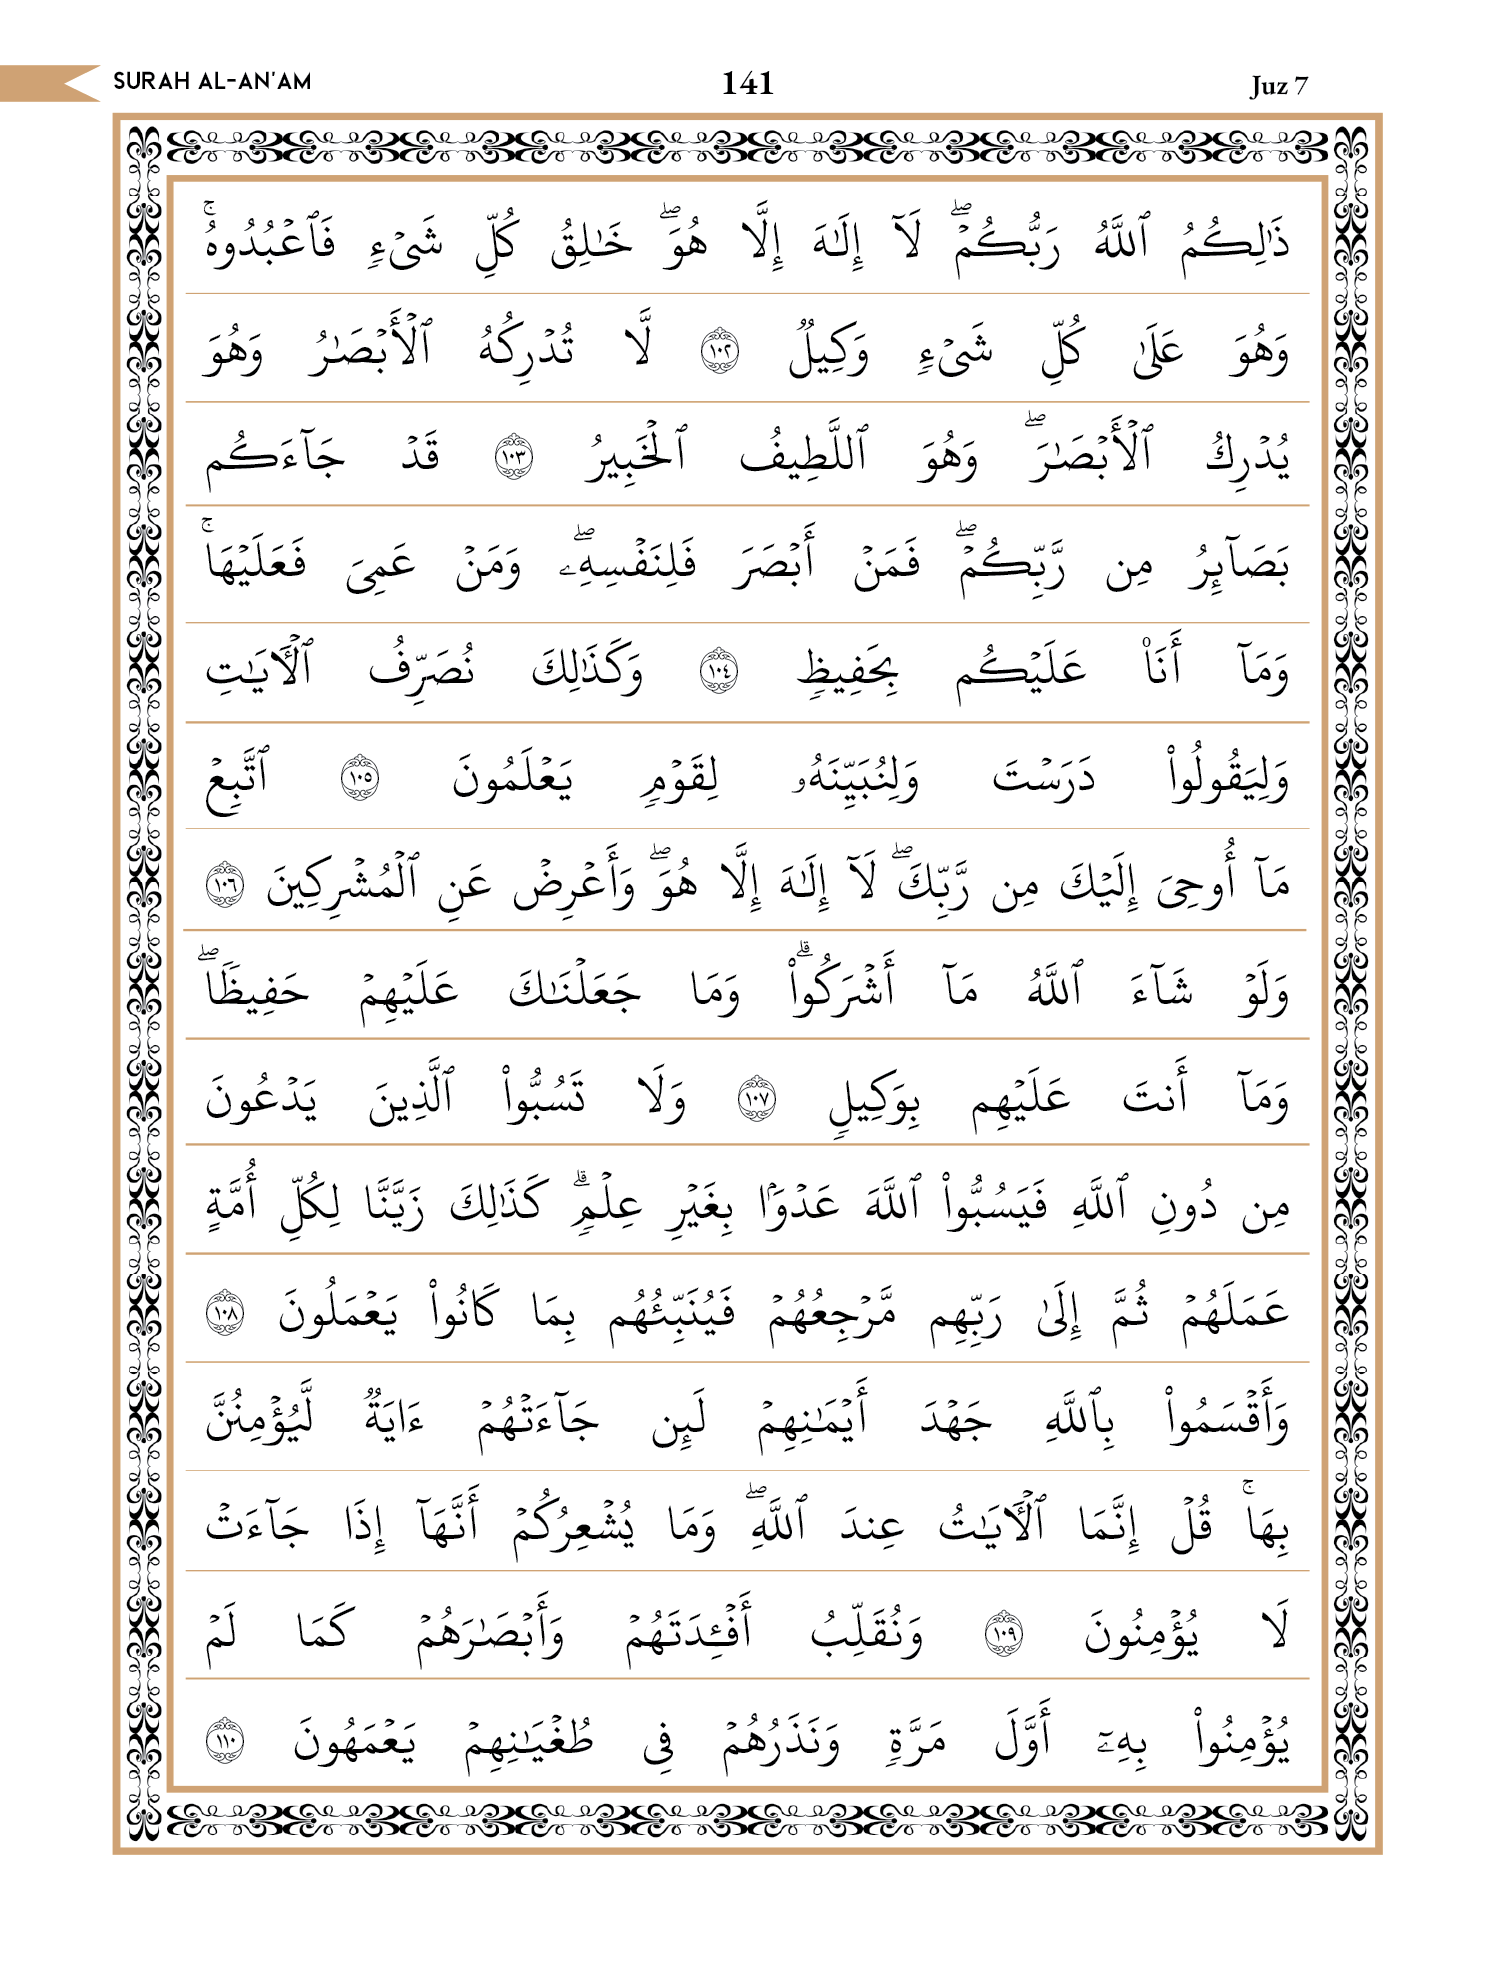 SURAH AL-AN'AM
141
Juz 7
ذَٰلِكُمُ ٱللَّهُ رَبُّكُمْۖ لَآ إِلَـٰهَ إِلَّا هُوَۖ خَـٰلِقُ كُلِّ شَىْءٍ فَٱعْبُدُوهُۚ
وَهُوَ عَلَىٰ كُلِّ شَىْءٍ وَكِيلٌ ١٠٢ لَّا تُدْرِكُهُ ٱلْأَبْصَـٰرُ وَهُوَ
يُدْرِكُ ٱلْأَبْصَـٰرَۖ وَهُوَ ٱللَّطِيفُ ٱلْخَبِيرُ ١٠٣ قَدْ جَآءَكُم
بَصَآئِرُ مِن رَّبِّكُمْۖ فَمَنْ أَبْصَرَ فَلِنَفْسِهِۦۖ وَمَنْ عَمِىَ فَعَلَيْهَاۚ
وَمَآ أَنَا۠ عَلَيْكُم بِحَفِيظٍ ١٠٤ وَكَذَٰلِكَ نُصَرِّفُ ٱلْـَٔايَـٰتِ
وَلِيَقُولُوا۟ دَرَسْتَ وَلِنُبَيِّنَهُۥ لِقَوْمٍ يَعْلَمُونَ ١٠٥ ٱتَّبِعْ
مَآ أُوحِىَ إِلَيْكَ مِن رَّبِّكَۖ لَآ إِلَـٰهَ إِلَّا هُوَۖ وَأَعْرِضْ عَنِ ٱلْمُشْرِكِينَ ١٠٦
وَلَوْ شَآءَ ٱللَّهُ مَآ أَشْرَكُوا۟ۗ وَمَا جَعَلْنَـٰكَ عَلَيْهِمْ حَفِيظًاۖ
وَمَآ أَنتَ عَلَيْهِم بِوَكِيلٍ ١٠٧ وَلَا تَسُبُّوا۟ ٱلَّذِينَ يَدْعُونَ
مِن دُونِ ٱللَّهِ فَيَسُبُّوا۟ ٱللَّهَ عَدْوًۢا بِغَيْرِ عِلْمٍۗ كَذَٰلِكَ زَيَّنَّا لِكُلِّ أُمَّةٍ
عَمَلَهُمْ ثُمَّ إِلَىٰ رَبِّهِم مَّرْجِعُهُمْ فَيُنَبِّئُهُم بِمَا كَانُوا۟ يَعْمَلُونَ ١٠٨
وَأَقْسَمُوا۟ بِٱللَّهِ جَهْدَ أَيْمَـٰنِهِمْ لَئِن جَآءَتْهُمْ ءَايَةٌ لَّيُؤْمِنُنَّ
بِهَاۚ قُلْ إِنَّمَا ٱلْـَٔايَـٰتُ عِندَ ٱللَّهِۖ وَمَا يُشْعِرُكُمْ أَنَّهَآ إِذَا جَآءَتْ
لَا يُؤْمِنُونَ ١٠٩ وَنُقَلِّبُ أَفْـِٔدَتَهُمْ وَأَبْصَـٰرَهُمْ كَمَا لَمْ
يُؤْمِنُوا۟ بِهِۦٓ أَوَّلَ مَرَّةٍ وَنَذَرُهُمْ فِى طُغْيَـٰنِهِمْ يَعْمَهُونَ ١١٠